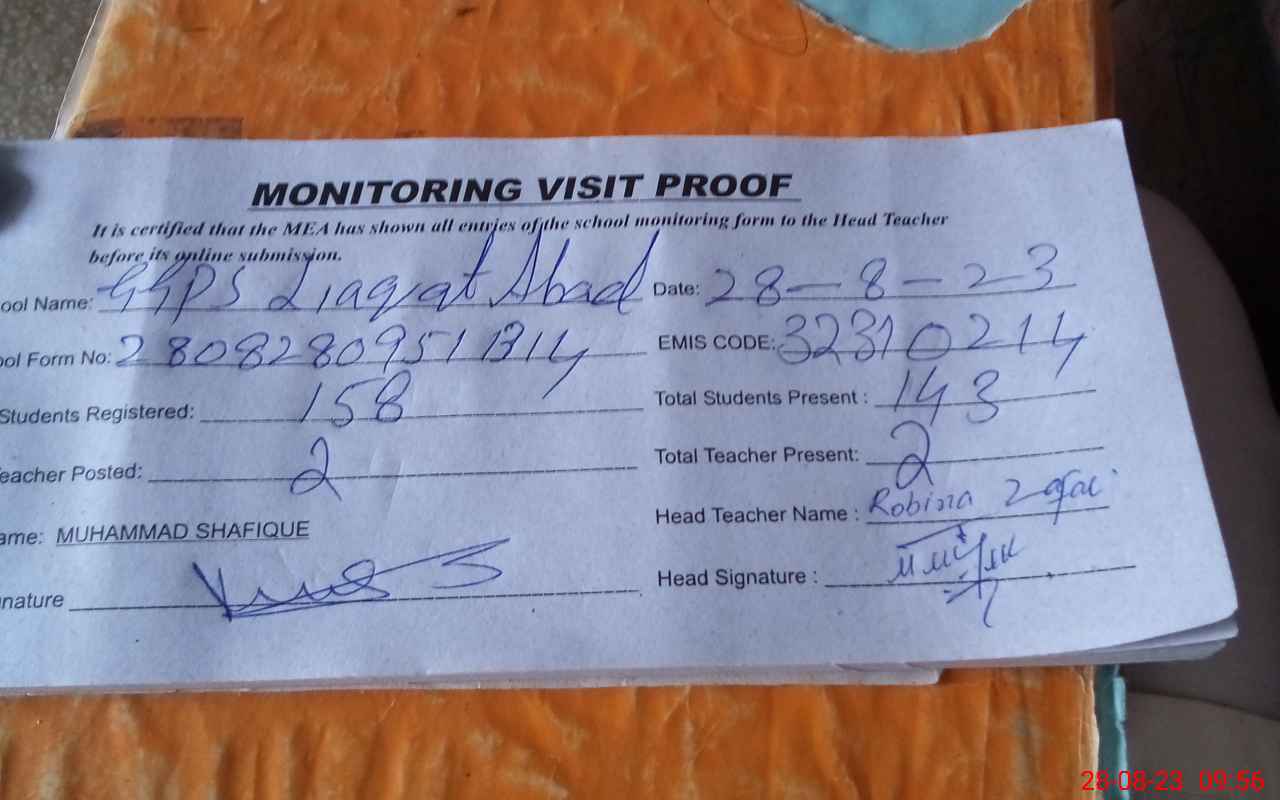 MONITORING VISIT PROOF
It is certified that the MEA has shown all entries of the school monitoring form to the Head Teacher
before its online submission.
ool Name: GGPS Liaqat Abad Date: 28-8-23
ool Form No: 2808280951314 EMIS CODE: 32310214
Students Registered: 158 Total Students Present : 143
eacher Posted: 2 Total Teacher Present: 2
ame: MUHAMMAD SHAFIQUE Head Teacher Name : Robina Zafar
nature Head Signature :
28-08-23 09:56